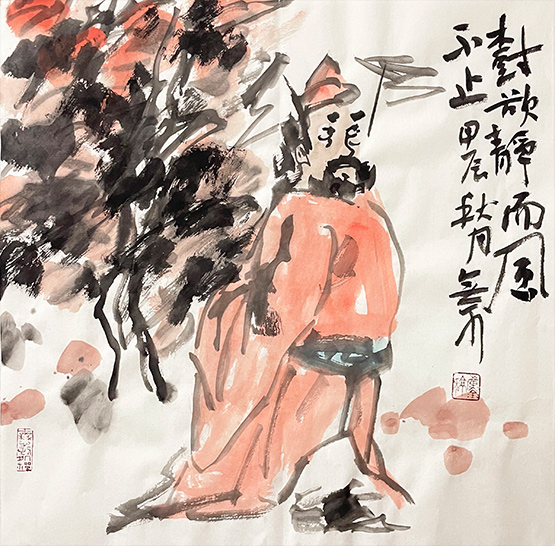 樹欲靜而風
不止甲辰秋月